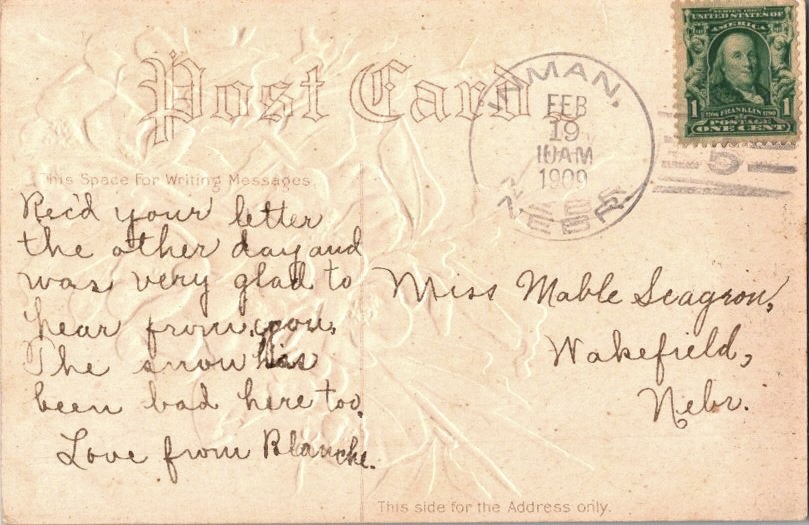 Post Card
UNITED STATES OF
AMERICA
1 1
FRANKLIN
POSTAGE
ONE CENT
FEB
19
10AM
1909
NEBR
5
This Space for Writing Messages
Rec'd your letter
the other day and
was very glad to
hear from you.
The snow has
been bad here too.
Love from Blanche.
Miss Mable Seagron,
Wakefield,
Nebr.
This side for the Address only.